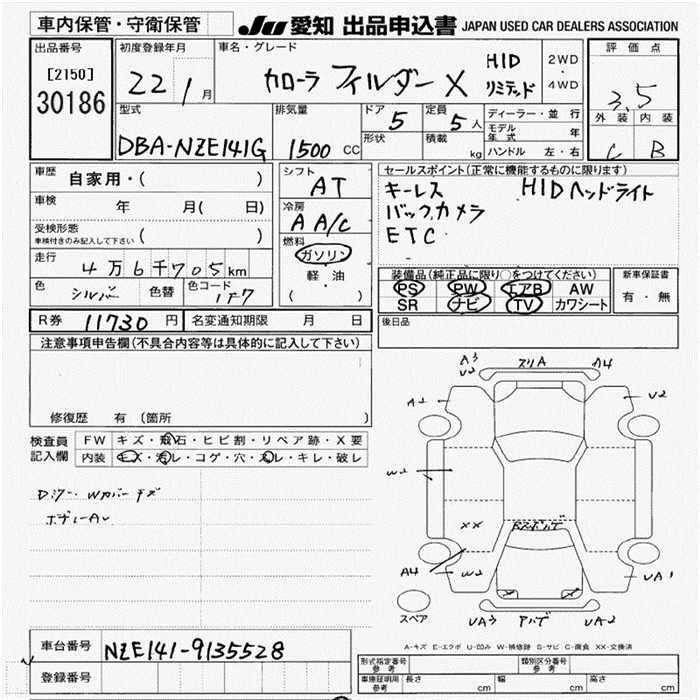 車内保管・守衛保管
JU 愛知 出品申込書 JAPAN USED CAR DEALERS ASSOCIATION
出品番号
[2150]
30186
初度登録年月
22 1月
車名・グレード
カローラ フィルダー X HID リミテッド
2WD・4WD
評価点
3.5
外装 内装
C B
型式
DBA-NZE141G
排気量
1500 CC
ドア 5
形状
定員 5人
積載 kg
ディーラー・並行
モデル年式 年
ハンドル 左・右
車歴 自家用・( )
車検 年 月( 日)
受検形態
車検付きのみ記入して下さい ( )
走行 4万6千705km
色 シルバー 色替 色コード 1F7
シフト
AT
冷房
A A/C
燃料
ガソリン
軽・油
( )
セールスポイント(正常に機能するものに限ります)
キーレス HIDヘッドライト
バックカメラ
ETC
装備品(純正品に限り○をつけてください)
PS PW エアB AW
SR ナビ TV カワシート
新車保証書
有・無
R券 11730 円 名変通知期限 月 日
後日品
注意事項申告欄(不具合内容等は具体的に記入して下さい)
修復歴 有(箇所
検査員記入欄
FW キズ・飛石・ヒビ割・リペア跡・X要
内装 キズ・汚レ・コゲ・穴・スレ・キレ・破レ
Dミラー Wカバーキズ
A3
U2
スリA
A4
A2
U2
W2
XX
A4
W2
UA1
UA3
UA2
スペア
A-キズ E-エクボ U-凹み W-補修跡 S-サビ C-腐食 XX-交換済
車台番号 NZE141-9135528
登録番号
型式指定番号
参考
類別区分番号
参考
車庫証明用
参考
長さ cm 幅 cm 高さ cm